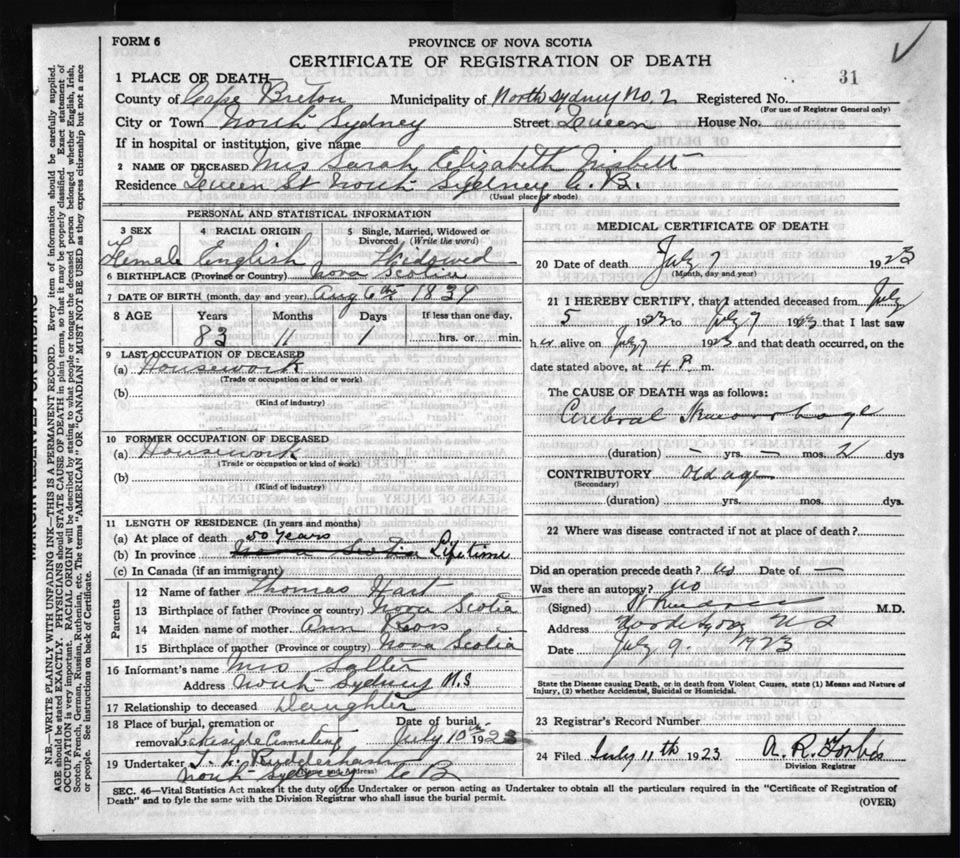 FORM 6
PROVINCE OF NOVA SCOTIA
CERTIFICATE OF REGISTRATION OF DEATH
31
1 PLACE OF DEATH—
County of Cape Breton Municipality of North Sydney No. 2 Registered No.
(For use of Registrar General only)
City or Town North Sydney Street Queen House No.
If in hospital or institution, give name
2 NAME OF DECEASED Mrs Sarah Elizabeth Nisbett
Residence Queen St North Sydney C. B.
(Usual place of abode)
PERSONAL AND STATISTICAL INFORMATION
3 SEX 4 RACIAL ORIGIN 5 Single, Married, Widowed or
Divorced (Write the word)
Female English Widowed
6 BIRTHPLACE (Province or Country) Nova Scotia
7 DATE OF BIRTH (month, day and year) Aug 6th 1839
8 AGE Years Months Days If less than one day,
83 11 1 hrs. or min.
9 LAST OCCUPATION OF DECEASED
(a) Housework
(Trade or occupation or kind or work)
(b)
(Kind of industry)
10 FORMER OCCUPATION OF DECEASED
(a) Housework
(Trade or occupation or kind of work)
(b)
(Kind of industry)
11 LENGTH OF RESIDENCE (In years and months)
(a) At place of death 50 Years
(b) In province Nova Scotia Lifetime
(c) In Canada (if an immigrant)
Parents
12 Name of father Thomas Hart
13 Birthplace of father (Province or country) Nova Scotia
14 Maiden name of mother Ann Ross
15 Birthplace of mother (Province or country) Nova Scotia
16 Informant's name Mrs Salter
Address North Sydney N.S
17 Relationship to deceased Daughter
18 Place of burial, cremation or Date of burial
removal Lakeside Cemetery July 10th 1923
19 Undertaker
(Name and Address)
North Sydney C B
MEDICAL CERTIFICATE OF DEATH
20 Date of death July 7 1923
(Month, day and year)
21 I HEREBY CERTIFY, that I attended deceased from July
5 1923 to July 7 1923 that I last saw
her alive on July 7 1923 and that death occurred, on the
date stated above, at 4 P. m.
The CAUSE OF DEATH was as follows:
Cerebral Haemorrhage
(duration) — yrs. — mos. 2 dys
CONTRIBUTORY old age
(Secondary)
(duration) yrs. mos. dys.
22 Where was disease contracted if not at place of death?
Did an operation precede death? no Date of —
Was there an autopsy? no
(Signed) M.D.
Address North Sydney N S
Date July 9. 1923
State the Disease causing Death, or in death from Violent Causes, state (1) Means and Nature of
Injury, (2) whether Accidental, Suicidal or Homicidal.
23 Registrar's Record Number
24 Filed July 11th 1923 A. R. Forbes
Division Registrar
SEC. 46—Vital Statistics Act makes it the duty of the Undertaker or person acting as Undertaker to obtain all the particulars required in the "Certificate of Registration of
Death" and to fyle the same with the Division Registrar who shall issue the burial permit.
(OVER)
MARGIN RESERVED FOR BINDING
N.B.—WRITE PLAINLY WITH UNFADING INK—THIS IS A PERMANENT RECORD. Every item of information should be carefully supplied.
AGE should be stated EXACTLY. PHYSICIANS should STATE CAUSE OF DEATH in plain terms, so that it may be properly classified. Exact statement of
OCCUPATION is very important. RACIAL ORIGIN will be described by stating to what people or tongue the deceased person belonged whether English, Irish,
Scotch, French, German, Russian, Ruthenian, etc. The terms "AMERICAN" OR "CANADIAN" MUST NOT BE USED as they express citizenship but not a race
or people. See instructions on back of Certificate.